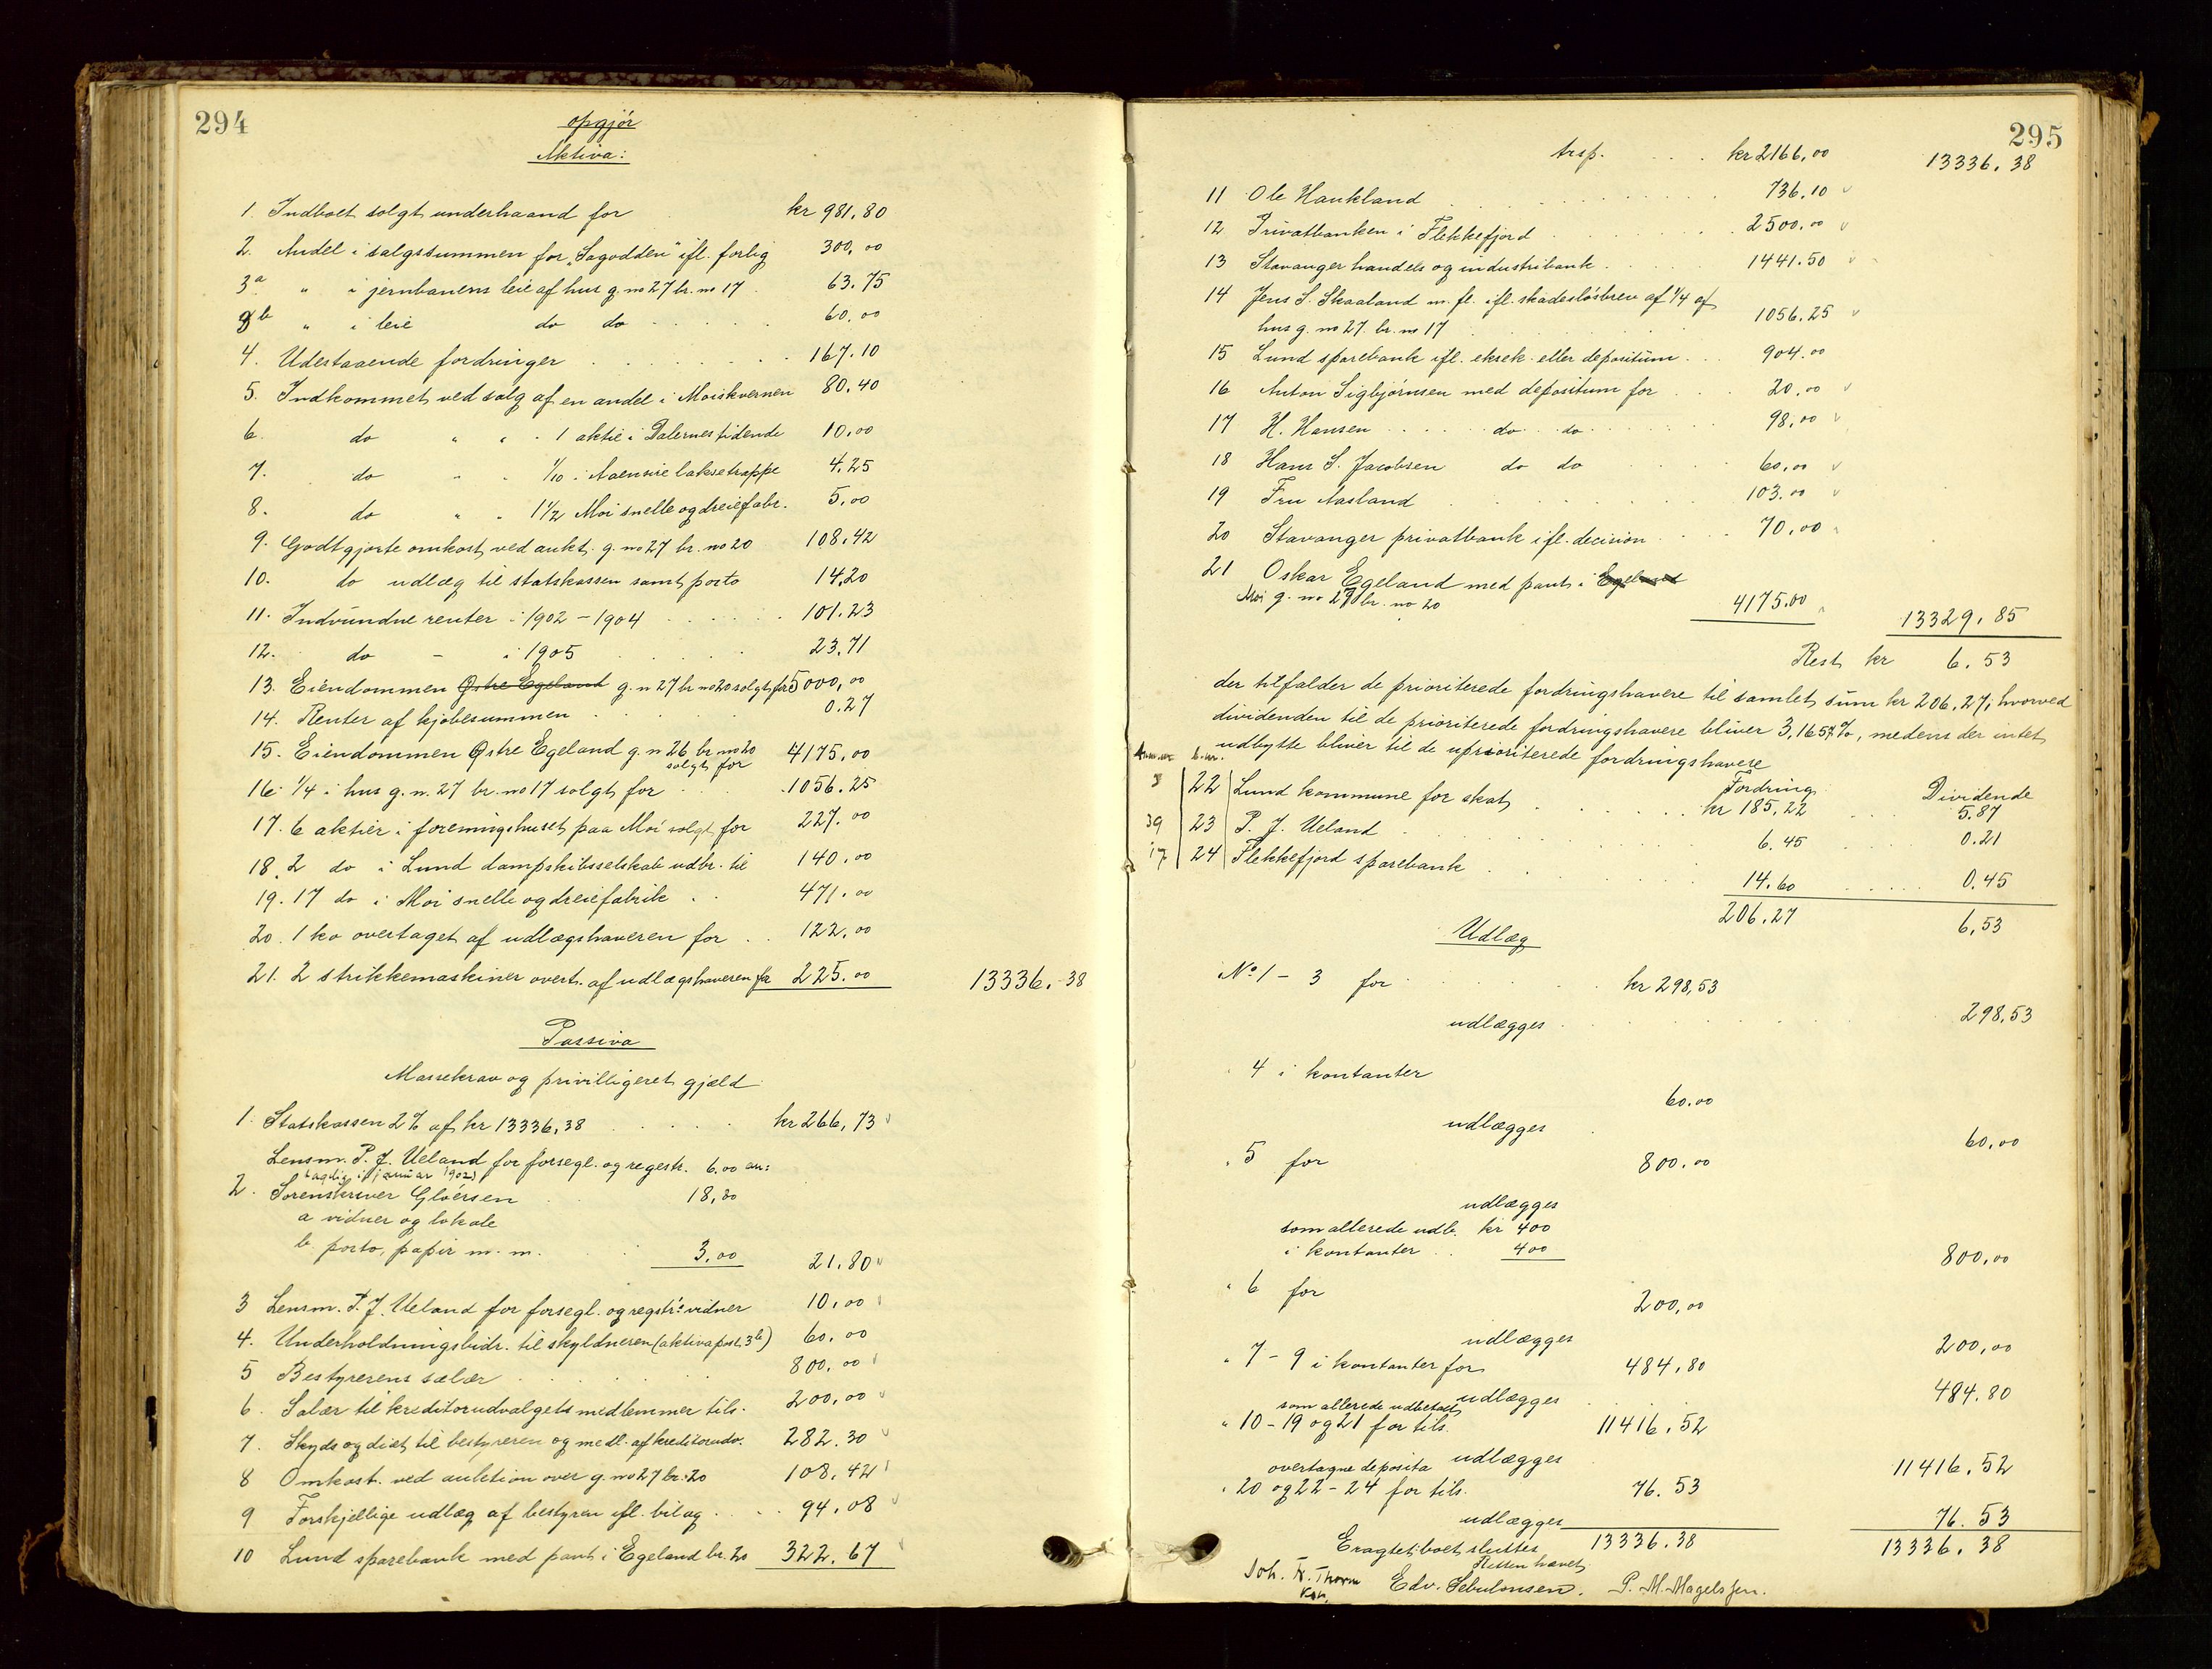 294
opgjör
Aktiva:
1. Indboet solgt underhaand for kr 981.80
2. Andel i salgssummen for "Sagodden" ifl. forlig 300,00
3a " i jernbanens leie af hus g. no 27 br. no 17 63.75
3b " i leie do do 60.00
4. Udestaaende fordringer 167.10
5. Indkommet ved salg af en andel i Moiskvernen 80.40
6. do " " 1 aktie i Dalernes tidende 10.00
7. do " " 1/10 i Aaensire laksetrappe 4.25
8. do " " 1 1/2 Moi snelle og dreiefabr. 5.00
9. Godtgjorte omkost. ved aukt. g. no 27 br. no 20 108.42
10. do udlæg til statskassen samt porto 14.20
11. Indvundne renter i 1902 - 1904 101.23
12. do - i 1905 23.71
13. Eiendommen Østre Egeland g. n 27 br no 20 solgt for 5000,00
14. Renter af kjøbesummen 0.27
15. Eiendommen Østre Egeland g. n 26 br. no 20
solgt for 4175.00
16. 1/4 i hus g. n. 27 br. no 17 solgt for 1056.25
17. 6 aktier i foreningshuset paa Moi solgt for 227.00
18. 2 do i Lund dampskibsselskab udbr. til 140.00
19. 17 do i Moi snelle og dreiefabrik 471.00
20. 1 ko overtaget af udlægshaveren for 122.00
21. 2 strikkemaskiner overt. af udlægshaveren for 225.00 13336.38
Passiva
Massekrav og privilligeret gjæld
1. Statskassen 2% af kr 13336,38 kr 266,73
Lensm. P. J. Ueland for forsegl. og regestr. 6.00 an:
2. Sorenskriver Gløersen 18,80
a vidner og lokale
b. porto, papir m. m. 3.00 21.80
3 Lensm. P. J. Ueland for forsegl. og regstr. vidner 10.00
4. Underholdningsbidr. til skyldneren (aktiva post 3b) 60.00
5 Bestyrerens salær 800.00
6. Salær til kreditorudvalgets medlemmer tils. 200.00
7. Skyds og diæt til bestyreren og medl. af kreditorudv. 282.30
8 Omkost. ved auktion over g. no 27 br. 20 108.42
9 Forskjellige udlæg af bestyren ifl. bilag 94.08
10 Lund sparebank med pant i Egeland br. 20 322.67
295
trsp. kr 2166.00 13336.38
11 Ole Haukland 736.10
12 Privatbanken i Flekkefjord 2500.00
13 Stavanger handels og industribank 1441.50
14 Jens S. Skaaland m. fl. ifl. skadesløsbrev af 1/4 af
hus g. no 27 br. no 17 1056.25
15 Lund sparebank ifl. eksek. eller depositum 904.00
16 Anton Sigbjørnsen med depositum for 20.00
17 H. Hansen do do 98,00
18 Hans S. Jacobsen do do 60.00
19 Fru Aasland 103.00
20 Stavanger privatbank ifl. decision 70.00
21 Oskar Egeland med pant i Egeland
Moi g. no 27 br. no 20 4175.00 13329.85
Rest kr 6.53
der tilfalder de prioriterede fordringshavere til samlet sum kr 206.27, hvorved
dividenden til de prioriterede fordringshavere bliver 3,1657%, medens der intet
udbytte bliver til de uprioriterede fordringshavere
Fordring Dividende
22 Lund kommune for skat kr 185.22 5.87
39 23 P. J. Ueland 6.45 0.21
17 24 Flekkefjord sparebank 14.60 0.45
206.27 6,53
Udlæg
No 1 - 3 for kr 298,53
udlægges 298,53
4 i kontanter 60.00
udlægges 60,00
" 5 for 800.00
udlægges
som allerede udb. kr 400
i kontanter 400 800,00
" 6 for 200,00
udlægges 200,00
" 7 - 9 i kontanter for 484.80
udlægges 484.80
som allerede udbetalt
" 10 - 19 og 21 for tils. 11416.52
udlægges 11416.52
overtagne deposita
" 20 og 22 - 24 for tils. 76.53
udlægges 76.53
13336.38 13336.38
Eragtet: boet sluttes
Retten hævet.
Joh. Fr. Thorm Edv. Sebulonsen. P. M. Magelssen.